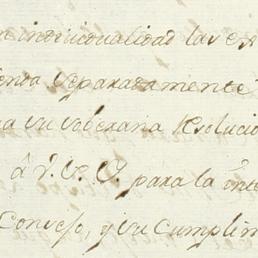 individualidad las ex
separadamente
su soberana Resolucio
â V. E. para la inte
Consejo, y su Cumplim